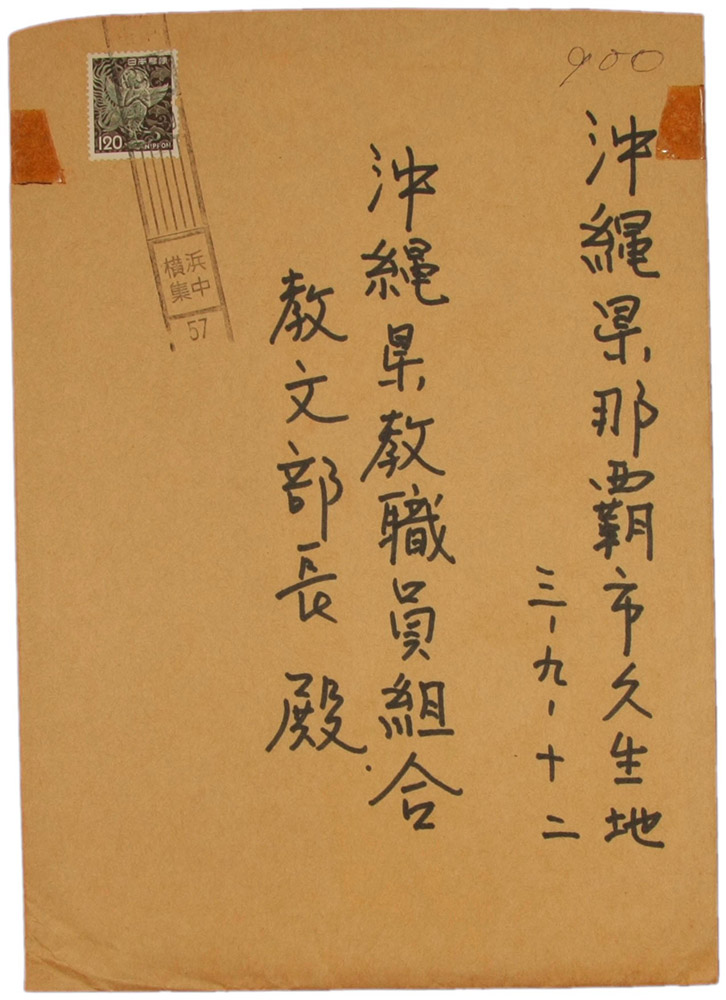 900
沖縄県那覇市久生地
三-九-十二
沖縄県教職員組合
教文部長 殿
日本郵便
120
NIPPON
横浜
集中
57